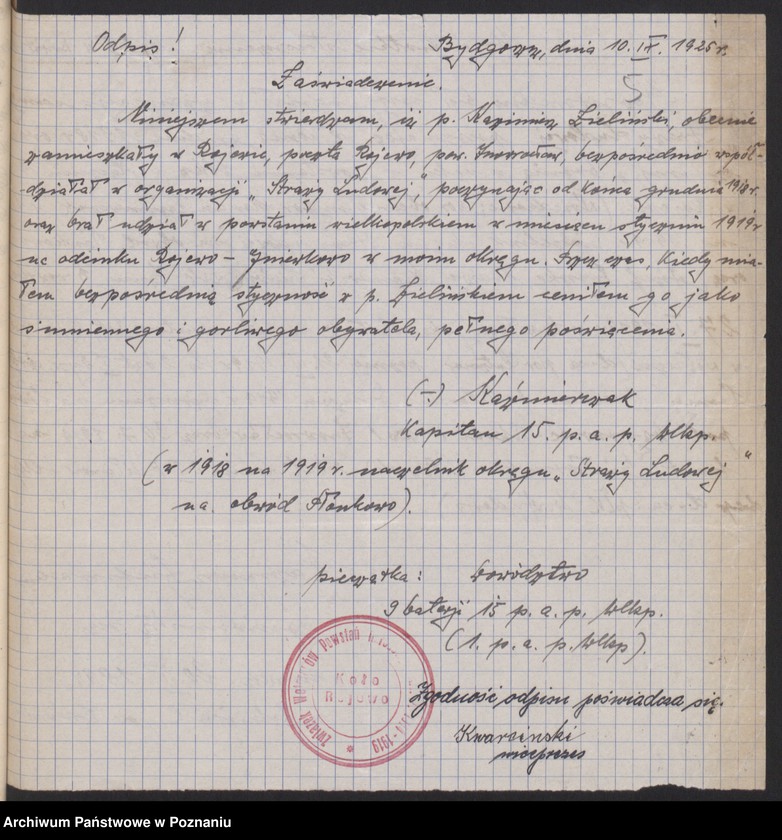 Odpis!
Bydgoszcz, dnia 10. IX. 1925 r.
5
Zaświadczenie.
Niniejszem stwierdzam, iż p. Kazimierz Zieliński, obecnie
zamieszkały w Rojewie, poczta Rojewo, pow. Inowrocław, bezpośrednio współ-
działał w organizacji „Straży Ludowej", począwszy od końca grudnia 1918 r.
oraz brał udział w powstaniu wielkopolskiem w miesiącu styczniu 1919 r
na odcinku Rojewo - Gniewkowo w moim okręgu. Przez czas, kiedy mia-
łem bezpośrednią styczność z p. Zielińskiem ceniłem go jako
sumiennego i gorliwego obywatela, pełnego poświęcenia.
(-) Kaźmierczak
Kapitan 15. p. a. p. Wlkp.
(w 1918 na 1919 r. naczelnik okręgu „Straży Ludowej"
na obwód Płonkowo).
pieczątka: Dowództwo
9 baterji 15 p. a. p. Wlkp.
(1. p. a. p. Wlkp).
Związek Weteranów Powstań
Koło
Rojewo
1919
Zgodność odpisu poświadcza się.
Kwarciński
wiceprezes
Archiwum Państwowe w Poznaniu